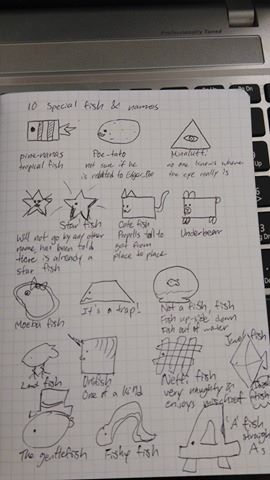 Professionally Tuned
10 Special fish & names
tropical fish
Poe-tato
not sure if he
is related to Edgar
no one knows where
the eye really is
Star fish
Will not go by any other
name, has been told
there is already a
star fish
Cate fish
tail to
get from
place to place
Underbear
Moeba fish
It's a trap!
Not a fish, fish
fish up-side down
fish out of water
fish
One of a kind
Netti fish
very naughty &
enjoys mischief
Jewel fish
The gentlefish
Fishy fish
'A' fish
straight
A's